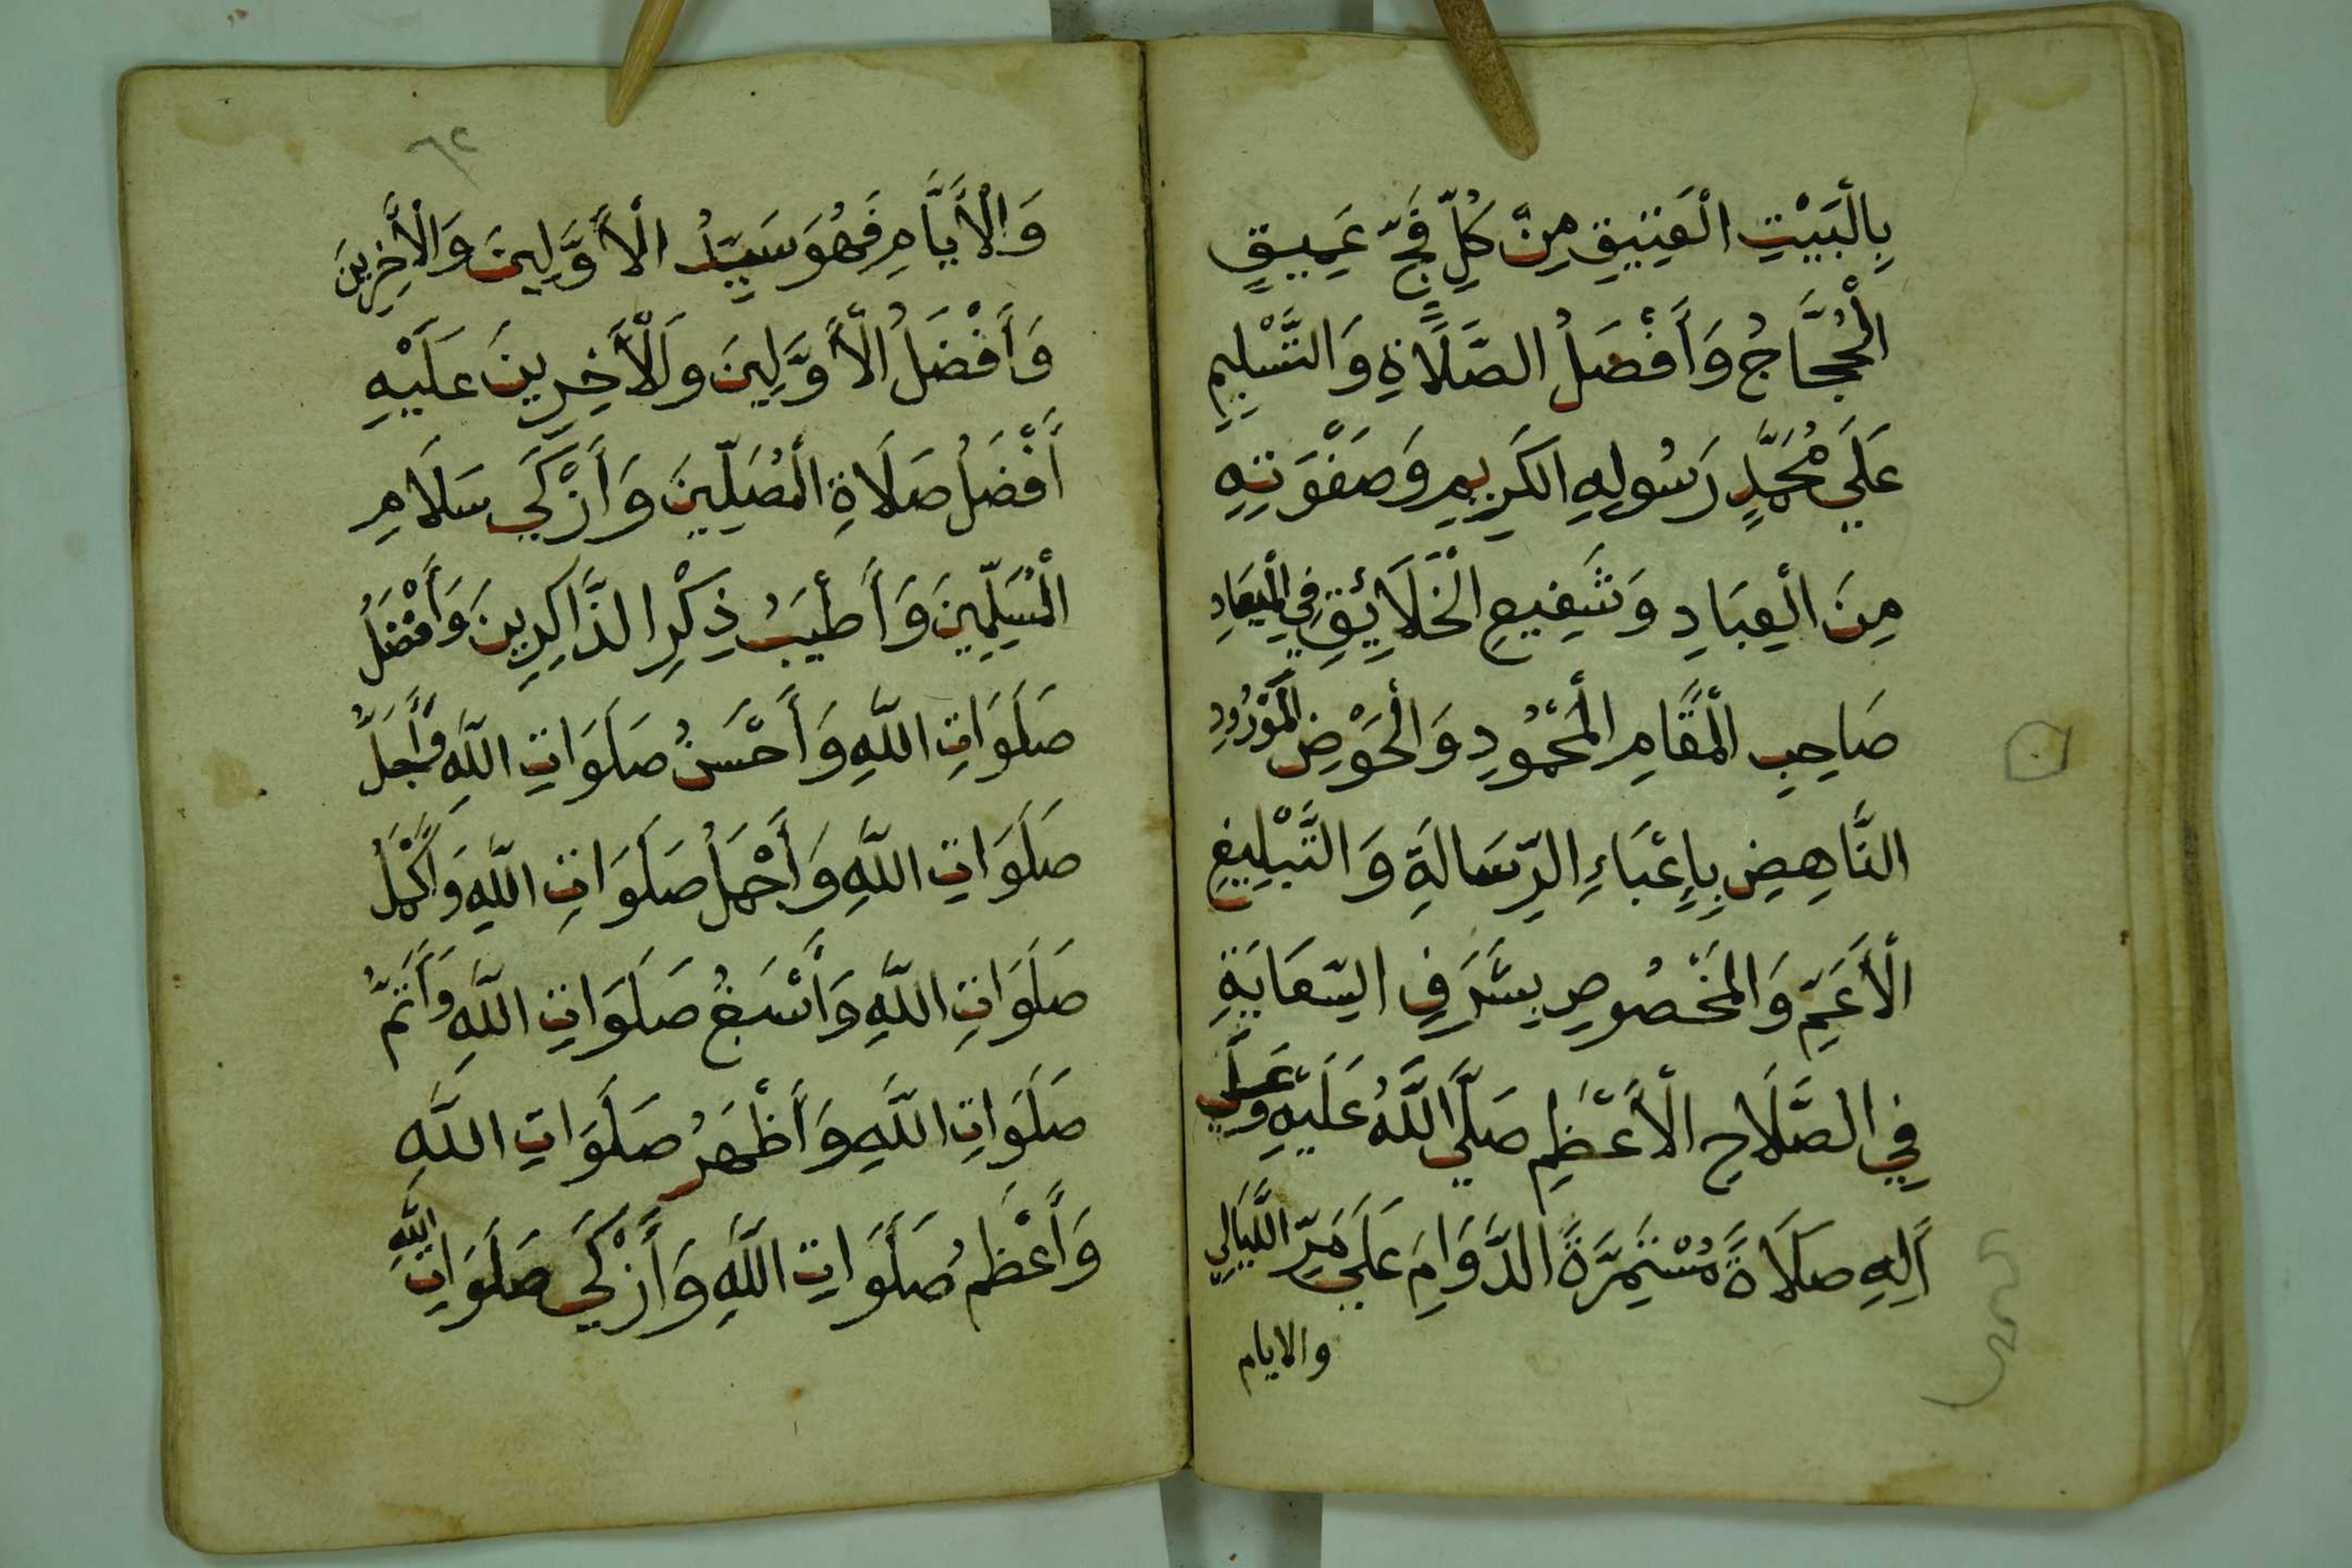 بِالْبَيْتِ الْعَتِيقِ مِنْ كُلِّ فَجٍّ عَمِيقٍ
الْحُجَّاجُ وَأَفْضَلُ الصَّلَاةِ وَالتَّسْلِيمِ
عَلَي مُحَمَّدٍ رَسُولِهِ الكَرِيمِ وَصَفْوَتِهِ
مِنَ الْعِبَادِ وَشَفِيعِ الْخَلَائِقِ فِي الْمِيعَادِ
صَاحِبِ الْمَقَامِ الْمَحْمُودِ وَالْحَوْضِ الْمَوْرُودِ
النَّاهِضِ بِإِعْبَاءِ الرِّسَالَةِ وَالتَّبْلِيغِ
الْأَعَمِّ وَالْمَخْصُوصِ بِشَرَفِ السِّعَايَةِ
فِي الصَّلَاحِ الْأَعْظَمِ صَلَّي اللَّهُ عَلَيْهِ وَعَلَي
آلِهِ صَلَاةً مُسْتَمِرَّةً الدَّوَامِ عَلَي مَرِّ اللَّيَالِي
والايام
٦٢
وَالْأَيَّامِ فَهُوَ سَيِّدُ الْأَوَّلِينَ وَالْأَخِرِينَ
وَأَفْضَلُ الْأَوَّلِينَ وَالْأَخِرِينَ عَلَيْهِ
أَفْضَلُ صَلَاةِ الْمُصَلِّينَ وَأَزْكَي سَلَامِ
الْمُسَلِّمِينَ وَأَطْيَبُ ذِكْرِ الذَّاكِرِينَ وَأَفْضَلُ
صَلَوَاتِ اللَّهِ وَأَحْسَنُ صَلَوَاتِ اللَّهِ وَأَجَلُّ
صَلَوَاتِ اللَّهِ وَأَجْمَلُ صَلَوَاتِ اللَّهِ وَأَكْمَلُ
صَلَوَاتِ اللَّهِ وَأَسْبَغُ صَلَوَاتِ اللَّهِ وَأَتَمُّ
صَلَوَاتِ اللَّهِ وَأَظْهَرُ صَلَوَاتِ اللَّهِ
وَأَعْظَمُ صَلَوَاتِ اللَّهِ وَأَزْكَي صَلَوَاتِ اللَّهِ